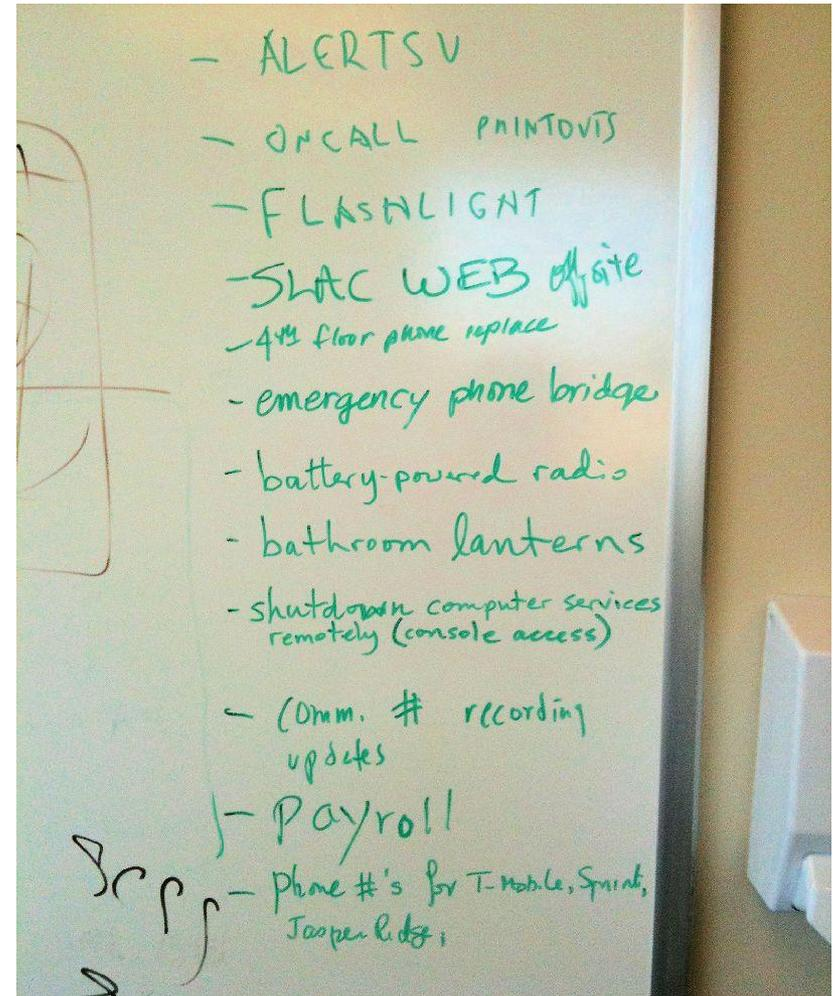 - ALERTSU
- ONCALL PRINTOUTS
- FLASHLIGHT
- SLAC WEB offsite
- 4TH floor phone replace
- emergency phone bridge
- battery-powered radio
- bathroom lanterns
- shutdown computer services
remotely (console access)
- Comm. # recording
updates
- Payroll
- Phone #'s for T-Mobile, Sprint,
Jasper Ridge,